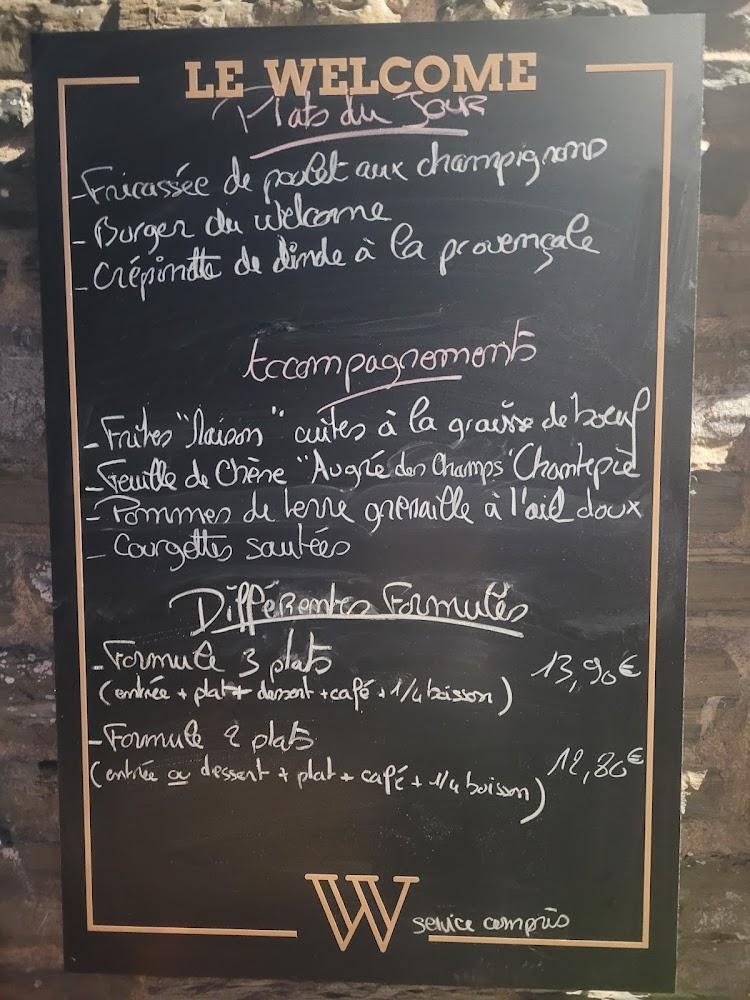 LE WELCOME
Plats du Jour
- Fricassée de poulet aux champignons
- Burger du welcome
- Crépinette de dinde à la provençale
Accompagnements
- Frites "Maison" cuites à la graisse de boeuf
- Feuille de Chêne "Au gré des Champs" Chantepie
- Pommes de terre grenaille à l'ail doux
- Courgettes sautées
Différentes Formules
- Formule 3 plats 13,90€
(entrée + plat + dessert + café + 1/4 boisson)
- Formule 2 plats
(entrée ou dessert + plat + café + 1/4 boisson) 12,80€
W service compris